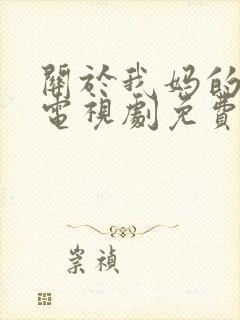 關於我媽的
電視劇免費
崇禎